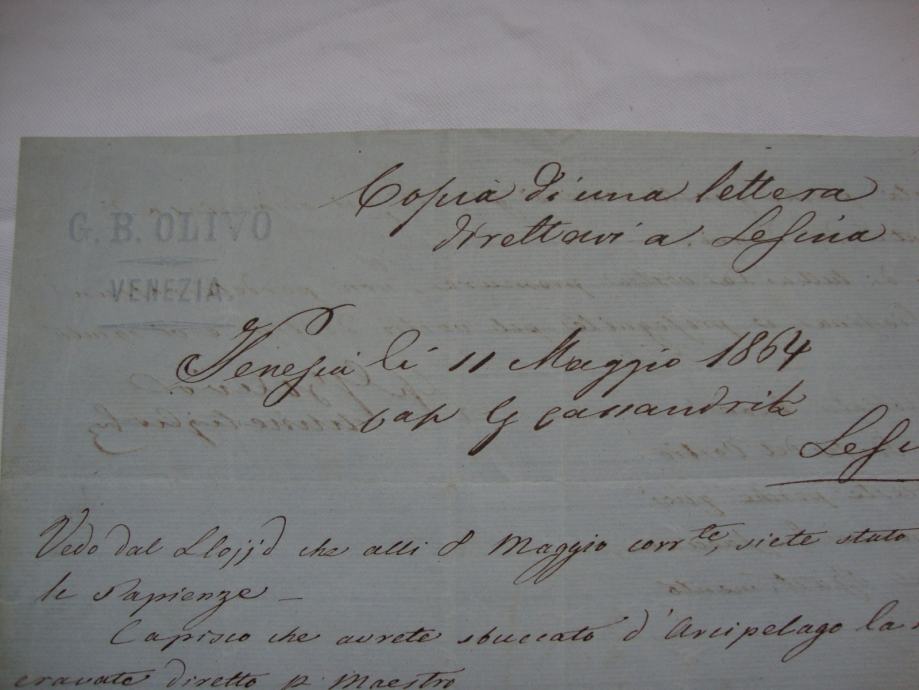 G. B. OLIVO
VENEZIA
Copia di una lettera
direttavi a Lesina
Venezia li 11 Maggio 1864
Cap G Cassandrits
Lesi
Vedo dal Llojjd che alli 8 Maggio corrte siete stato
le Sapienze –
Capisco che avrete sbuccato d'Arcipelago la
eravate diretto p Maestro